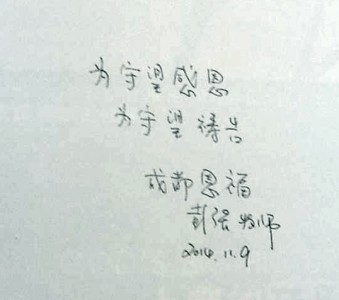 为守望感恩
为守望祷告
成都恩福
彭强牧师
2014.11.9